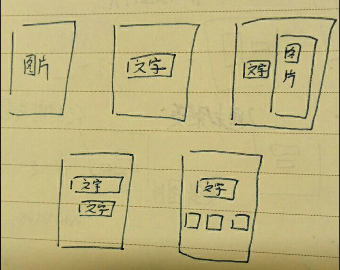 图片
文字
文字
图片
文字
文字
文字